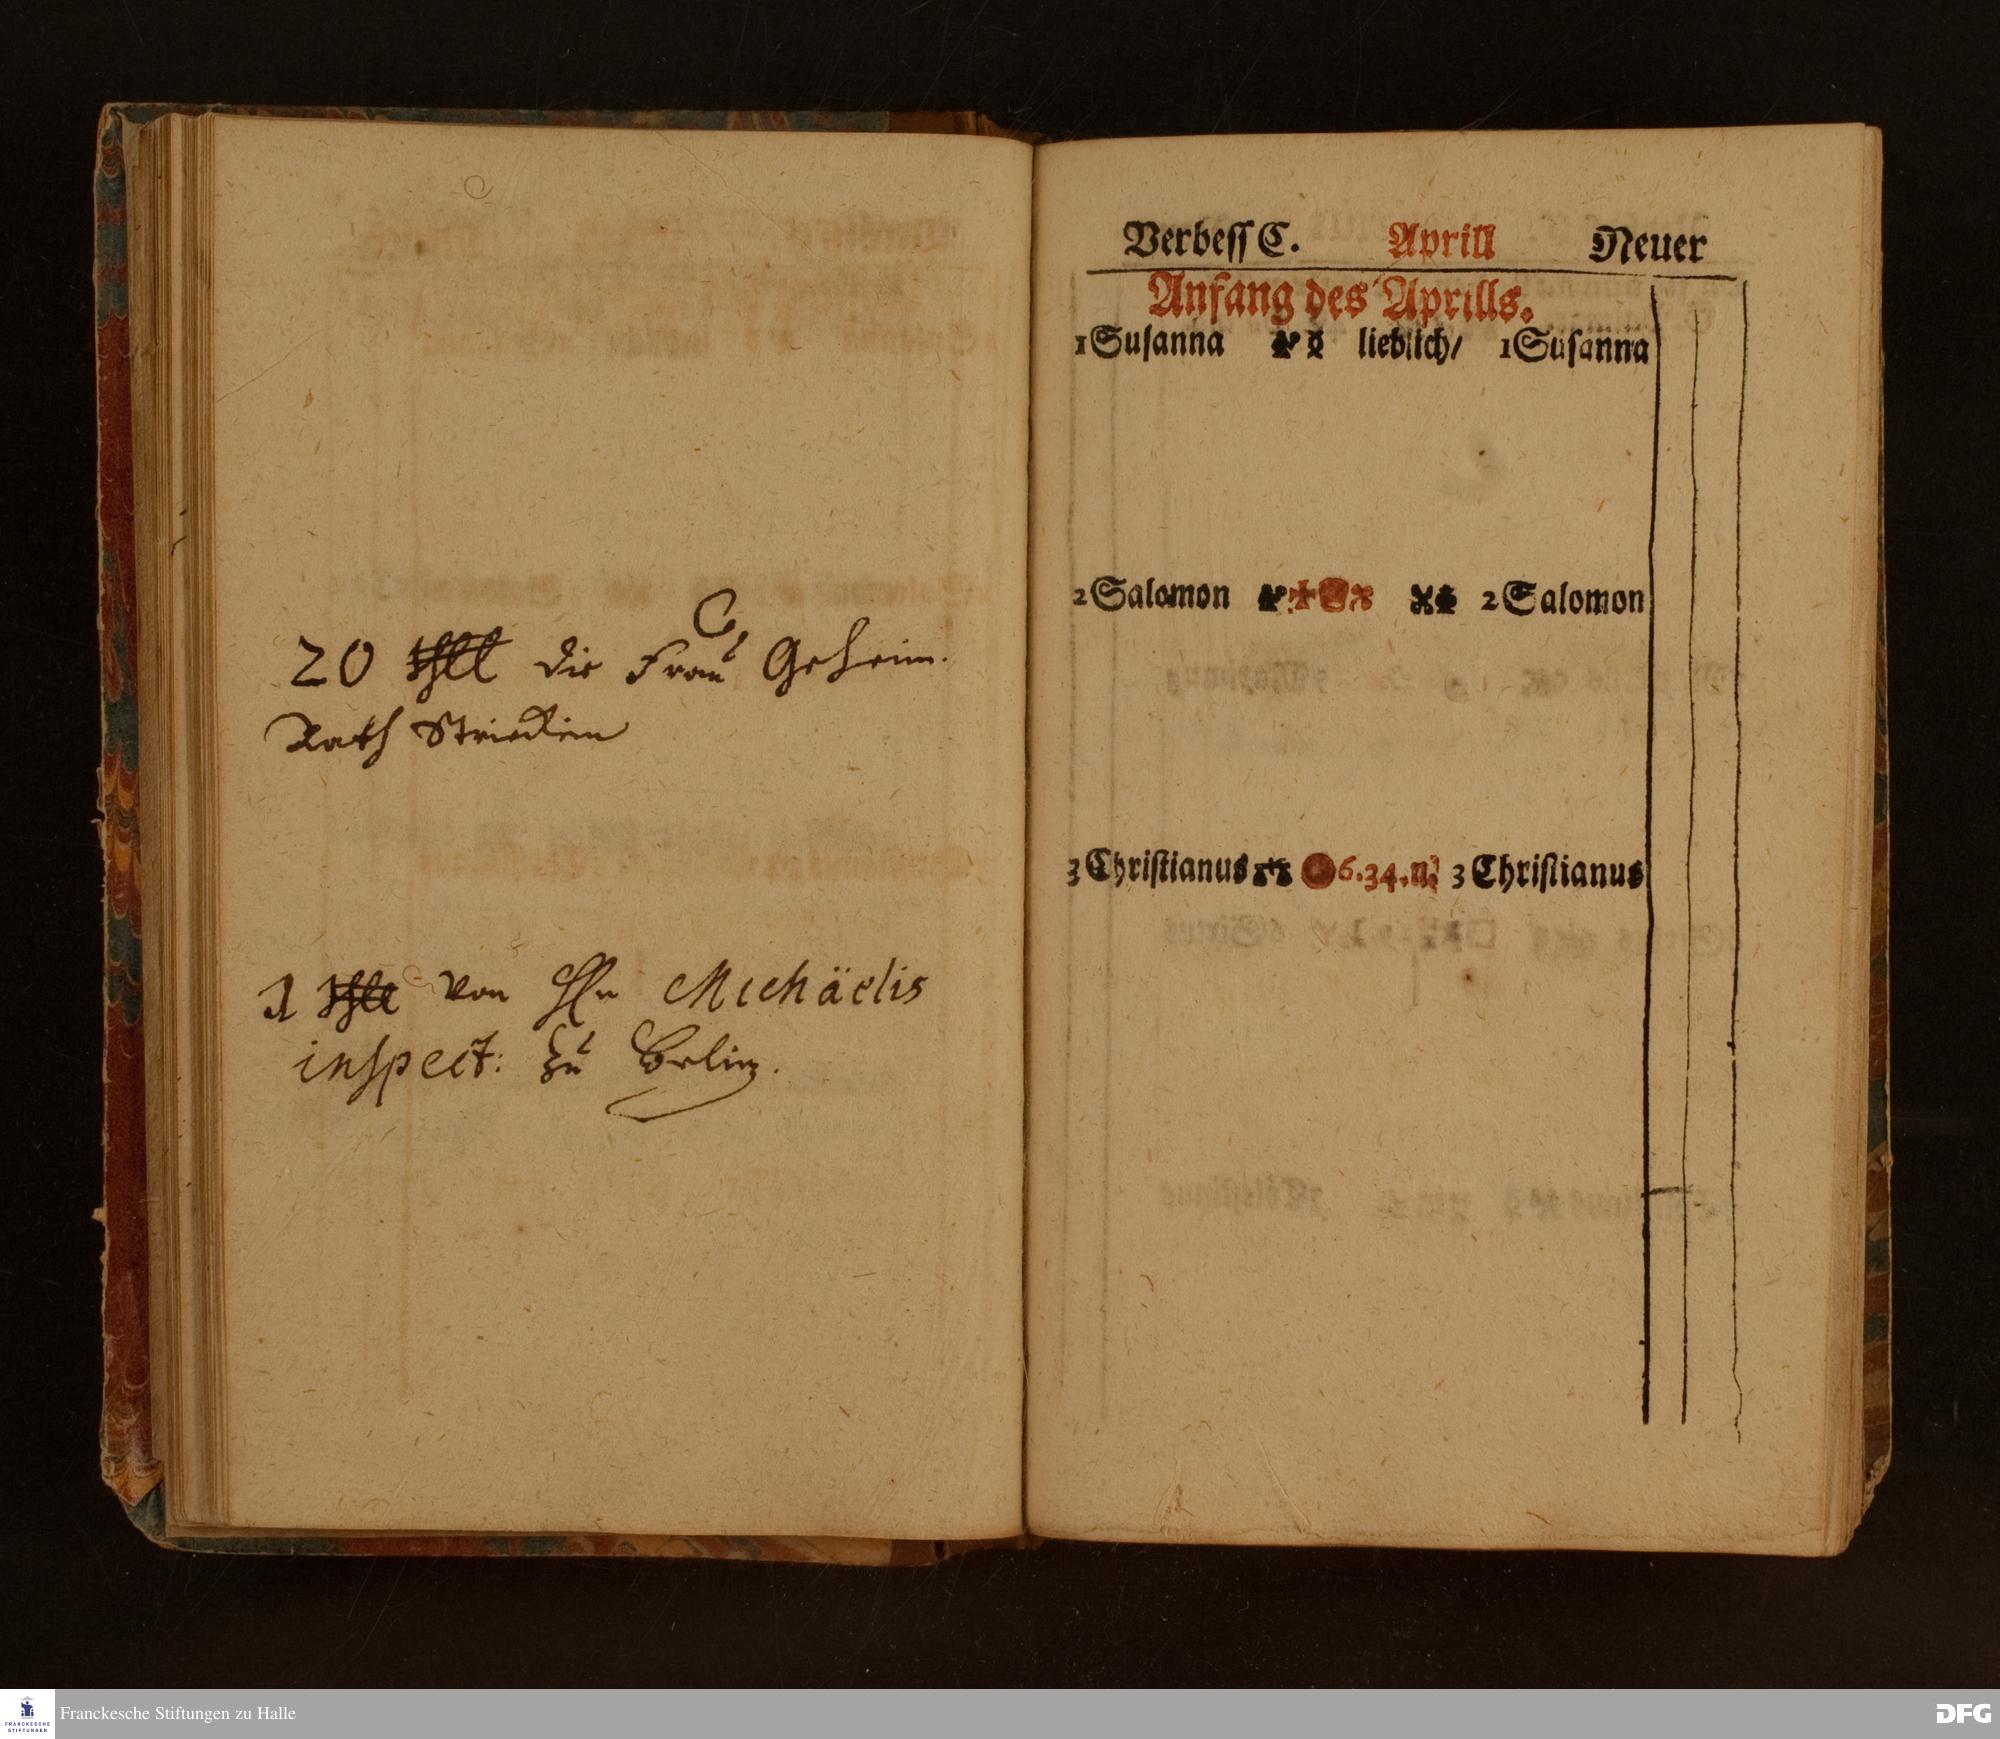 20 Thll die Frau Geheim.
Rath Strickin
1 Thll von Hn Michäelis
inspect: zu Berlin.
Verbeſſ C. Aprill Neuer
Anfang des Aprills.
1 Suſanna lieblich/ 1 Suſanna
2 Salomon 2 Salomon
3 Chriſtianus 6.34.n. 3 Chriſtianus
Franckesche Stiftungen zu Halle
FRANCKESCHE
STIFTUNGEN
DFG